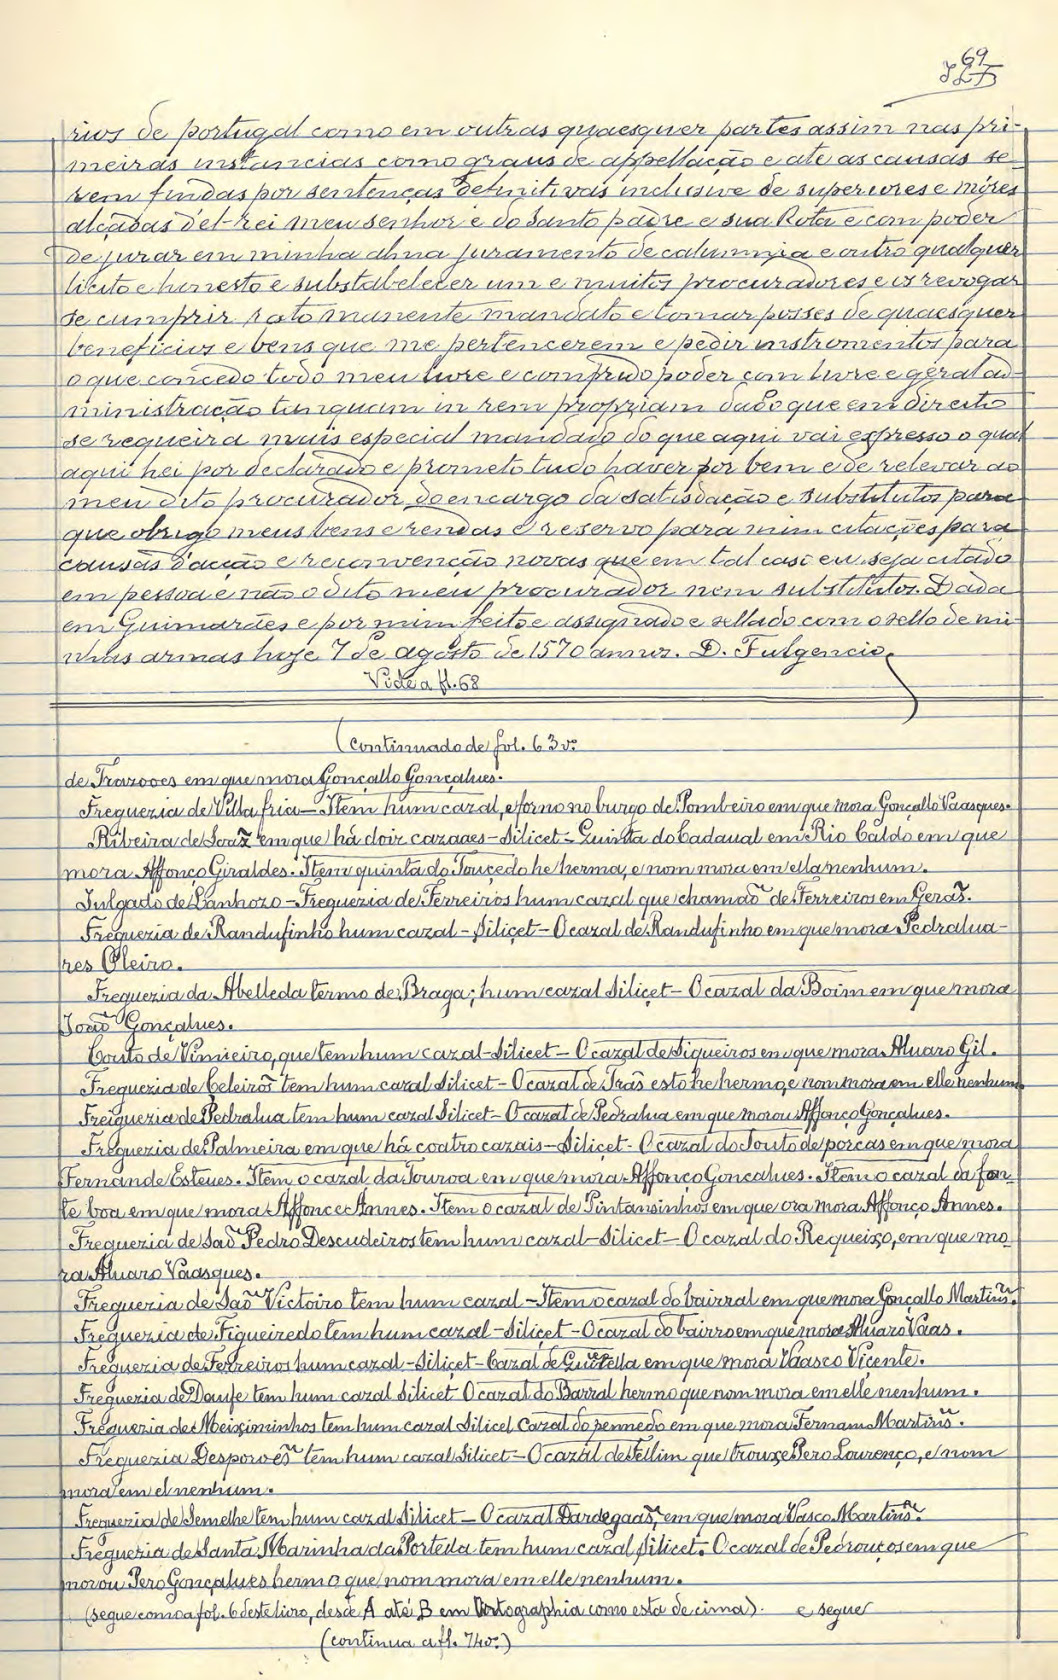 69
rios de portugal como em outras quaesquer partes assim nas pri-
meiras instancias como graus de appellação e até as causas se-
rem findas por sentenças definitivas inclusive de superiores e móres
alçadas d'el-rei meu senhor e do Santo padre e sua Rota e com poder
de jurar em minha alma juramento de calumnia e outro qualquer
licito e honesto e substabelecer um e muitos procuradores e os revogar
se cumprir rato manente mandato e tomar posses de quaesquer
beneficios e bens que me pertencerem e pedir instromentos para
o que concedo todo meu livre e comprido poder com livre e geral ad-
ministração tanquam in rem propriam dado que em direito
se requeira mais especial mandado do que aqui vai expresso o qual
aqui hei por declarado e prometo tudo haver por bem e de relevar ao
meu dito procurador do encargo da satisdação e substitutos para
que obrigo meus bens e rendas e reservo para mim citações para
causas d'acção e reconvenção novas que em tal caso eu seja citado
em pessoa e não o dito meu procurador nem substitutos. Dada
em Guimarães e por mim feito e assignado e sellado com o sello de mi-
nhas armas hoje 7 de agosto de 1570 annos. D. Fulgencio.
Vide a fl. 68
(continuado de fol. 63 vº
de Trazooes em que mora Gonçallo Gonçalues.
Freguezia de Villa fria - Item hum cazal, e forno no burgo de Pombeiro em que mora Gonçallo Vaasques.
Ribeira de Soaz em que há dois cazaaes - Silicet - Quinta do Cadaual em Rio Caldo em que
mora Affonço Giraldes. Item quinta do Touçedo he herma, e nom mora em ella nenhum.
Julgado de Lanhozo - Freguezia de Ferreiros hum cazal que chamão de Ferreiros em Geras.
Freguezia de Randufinho hum cazal - Siliçet - O cazal de Randufinho em que mora Pedralua-
res Oleiro.
Freguezia da Abelleda termo de Braga; hum cazal Siliçet - O cazal da Boim em que mora
João Gonçalues.
Couto de Vimieiro, que tem hum cazal - Silicet - O cazal de Sigueiros em que mora Aluaro Gil.
Freguezia de Celeiros tem hum cazal Silicet - O cazal de Trás esto he hermo, e nom mora em elle nenhum.
Freiguezia de Pedralua tem hum cazal Silicet - O cazal de Pedralua em que morou Affonço Gonçalues.
Freguezia de Palmeira em que há coatro cazais - Siliçet - O cazal do Souto de porcas em que mora
Fernande Esteues. Item o cazal da Touroa em que mora Affonço Goncalues. Item o cazal da fon-
te boa em que mora Affonce Annes. Item o cazal de Pintansinhos em que ora mora Affonço Annes.
Freguezia de São Pedro Descudeiros tem hum cazal - Silicet - O cazal do Requeixo, em que mo-
ra Aluaro Vaasques.
Freguezia de São Victoiro tem hum cazal - Item o cazal do bairral em que mora Gonçallo Martins.
Freguezia de Figueiredo tem hum cazal - Siliçet - O cazal do bairro em que mora Aluaro Vaas.
Freguezia de Ferreiros hum cazal - Siliçet - Cazal de em que mora Vaasco Vicente.
Freguezia de Doufe tem hum cazal Silicet O cazal do Barral hermo que nom mora em elle nenhum.
Freguezia de Meiximinhos tem hum cazal Silicet Cazal do pennedo em que mora Fernam Martins.
Freguezia Desporoes tem hum cazal Silicet - O cazal de Fellim que trouxe Pero Lourenço, e nom
mora em el nenhum.
Freguezia de Semelhe tem hum cazal Silicet - O cazal Dardegaas, em que mora Vasco Martins.
Freguezia de Santa Marinha da Portella tem hum cazal Silicet. O cazal de Pedrouços em que
morou Pero Gonçalues hermo que nom mora em elle nenhum.
(segue como a fol. 6 deste livro, desde A até B em Ortographia como esta de cima). e segue
(continua a fl. 74 vº)